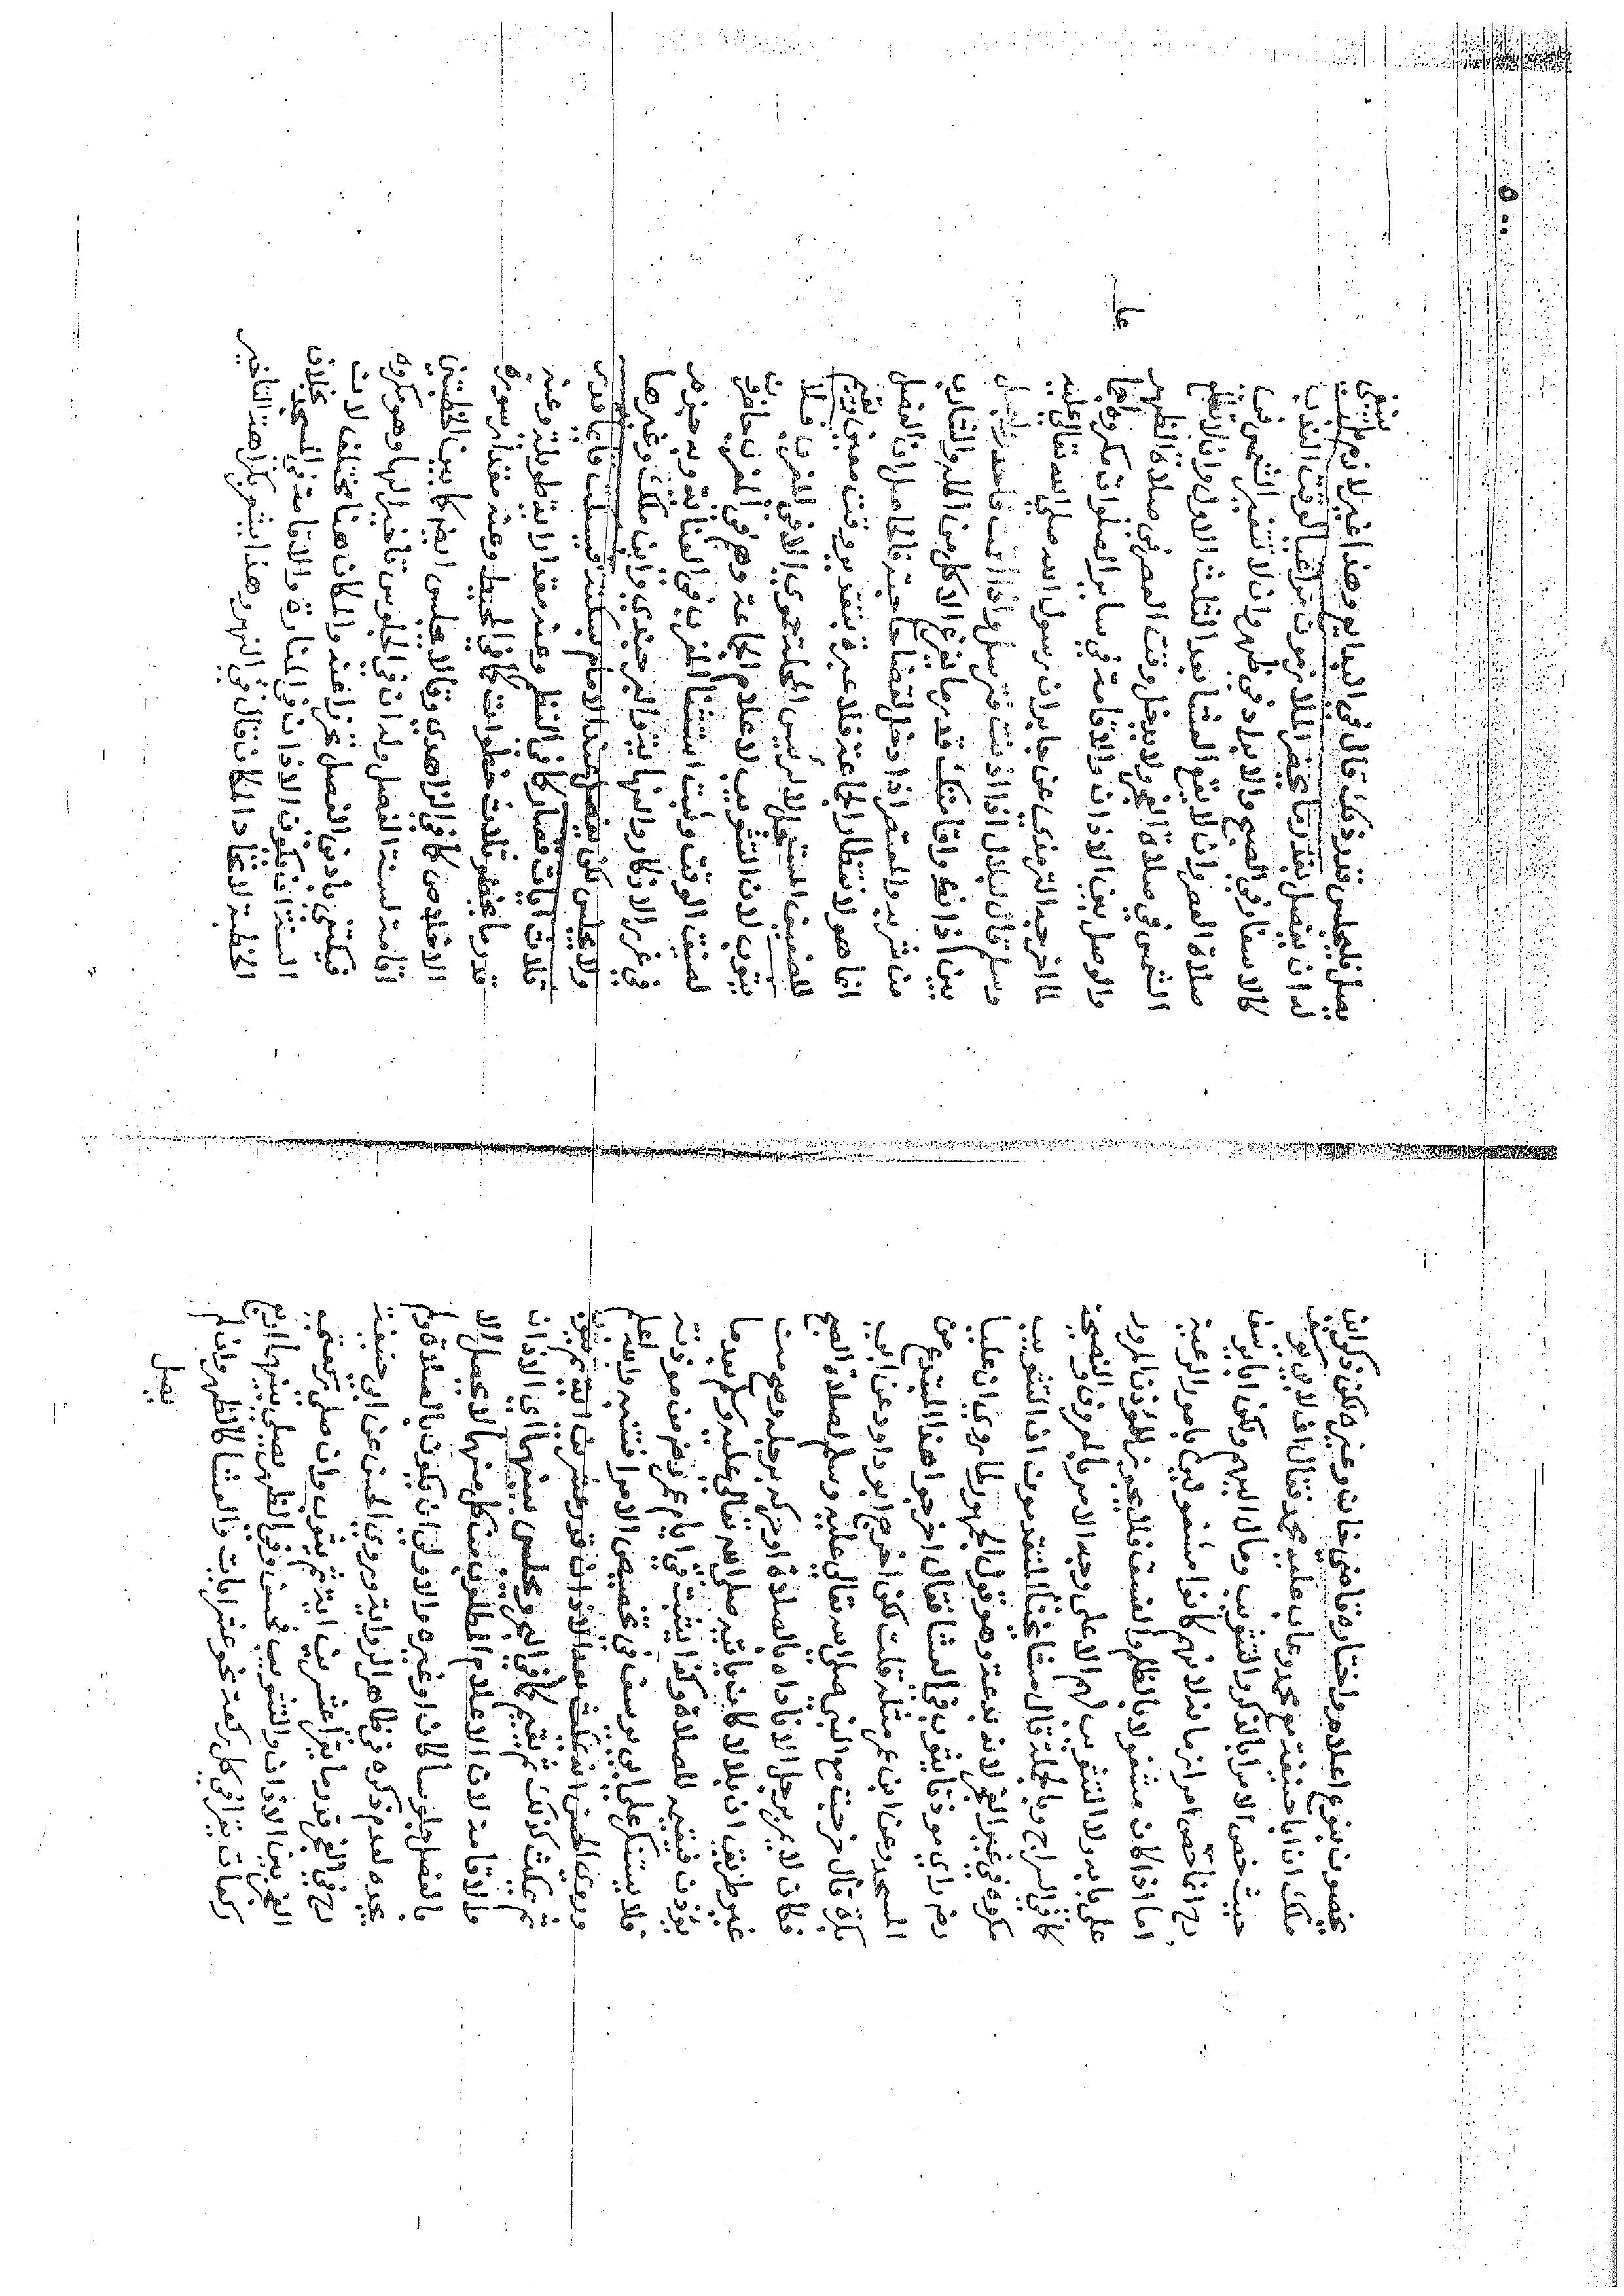 يخصون بنوع اعلام واختاره قاضي خان وغيره لكن ذكر ابن
ملك ان ابا حنيفة مع محمد وعاب عليه محمد فقال اف لابي يوسف
حيث خص الامرا بالذكر والتثويب ومال اليهم ولكن ابا يوسف
رح انما خص امرا زمانه لانهم كانوا مشغولين بامور الرعية
اما اذا كان مشغولا بالظلم والفسق فلا يجوز للمؤذن المرور
على بابه ولا التثويب لهم الا على وجه الامر بالمعروف والنصيحة
كما في السراج وبالجملة قال مشايخنا المتقدمون ان التثويب
مكروه في غير الفجر لانه بدعة وهو قول الجمهور لما روي ان عليا
رضه راي موذنا يثوب في العشا فقال اخرجوا هذا المبتدع من
المسجد وعن ابن عمر مثله قلت لكن اخرج ابو داود عن ابي
بكرة قال خرجت مع النبي صلى الله تعالى عليه وسلم لصلاة الصبح
فكان لا يمر برجل الا ناداه بالصلاة او حركه برجله وصح من
غير طريق ان بلالا كان ياتيه صلى الله تعالى عليه وسلم بعد ما
يؤذن فينبهه للصلاة وكذا يثبت في ايام عمر رضه من موذنه
فلا يستنكر على ابي يوسف في تخصيص الامرا فتنبه والله اعلم
وروى الحسن انه يمكث بعد الاذان قدر عشرين اية ثم يثوب
ثم يمكث كذلك ثم يقيم كما في البحر ويجلس بينهما اي الاذان
والاقامة لان الاعلام المطلوب من كل منهما لا يحصل الا
بالفصل جلوسا كان او غيره والاولى ان يكون بالصلاة ولم
يحده لعدم ذكره في ظاهر الرواية وروي الحسن عن ابي حنيفة
رح في الفجر قدر ما يقرا عشرين اية ثم يثوب وان صلى ركعتي
الفجر بين الاذان والتثويب فحسن وفي الظهر يصلي بينهما اربع
ركعات يقرا في كل ركعة نحو عشر ايات والعشا كالظهر وان لم
يصل
يصل فليجلس قدر ذلك قال في البدايع وهذا غير لازم بل ينبغي
له ان يفصل بقدر ما يحضر الملازمون مراعيا لوقت الندب
كالاسفار في الصبح والابراد في ظهر وان لا تتغير الشمس في
صلاة العصر وان لا يقع العشا بعد الثلث الاول وان لا تطلع
الشمس في صلاة الفجر ولا يدخل وقت العصر في صلاة الظهر
والوصل بين الاذان والاقامة في ساير الصلوات مكروه اجما
عا
لما اخرجه الترمذي عن جابر ان رسول الله صلى الله تعالى عليه
وسلم قال لبلال اذا اذنت فترسل واذا اقمت فاحدر واجعل
بين اذانك واقامتك قدر ما يفرغ الاكل من اكله والشارب
من شربه والمعتصر اذا دخل لقضا حاجته فالحاصل ان الفصل
انما هو لانتظار الجماعة فلا عبرة بتقدير وقت معين نعم
للضعيف المستعجل لا لرئيس المحلة الا في المغرب فلا
يثوب لان التثويب لاعلام الجماعة وهم في المغرب حاضرون
لضيق الوقت وثبت استثنا المغرب في العناية وبه جزم
في غرر الاذكار والنهاية والبرجندي وابن ملك وغيرها
ولا يجلس لكن يفصل عند الامام بسكتة فيسكت قائما قدر
ثلاث ايات قصار كما في النظم وعنه مقدار اية طويلة وعنه
قدر ما يخطو ثلاث خطوات كما في المحيط وعنه مقدار سورة
الاخلاص كما في الزاهدي وقالا يجلس ايضا كما بين الخطبتين
اقامة لسنة الفصل وله ان في الجلوس تاخير لها وهو مكروه
فيكتفى بادنى الفصل تحرزا عنه والمكان هنا مختلف لان
السنة ان يكون الاذان في المنارة والاقامة في المسجد بخلاف
الخطبة لاتحاد المكان قال في النهر وهذا يشير بكراهة التاخير